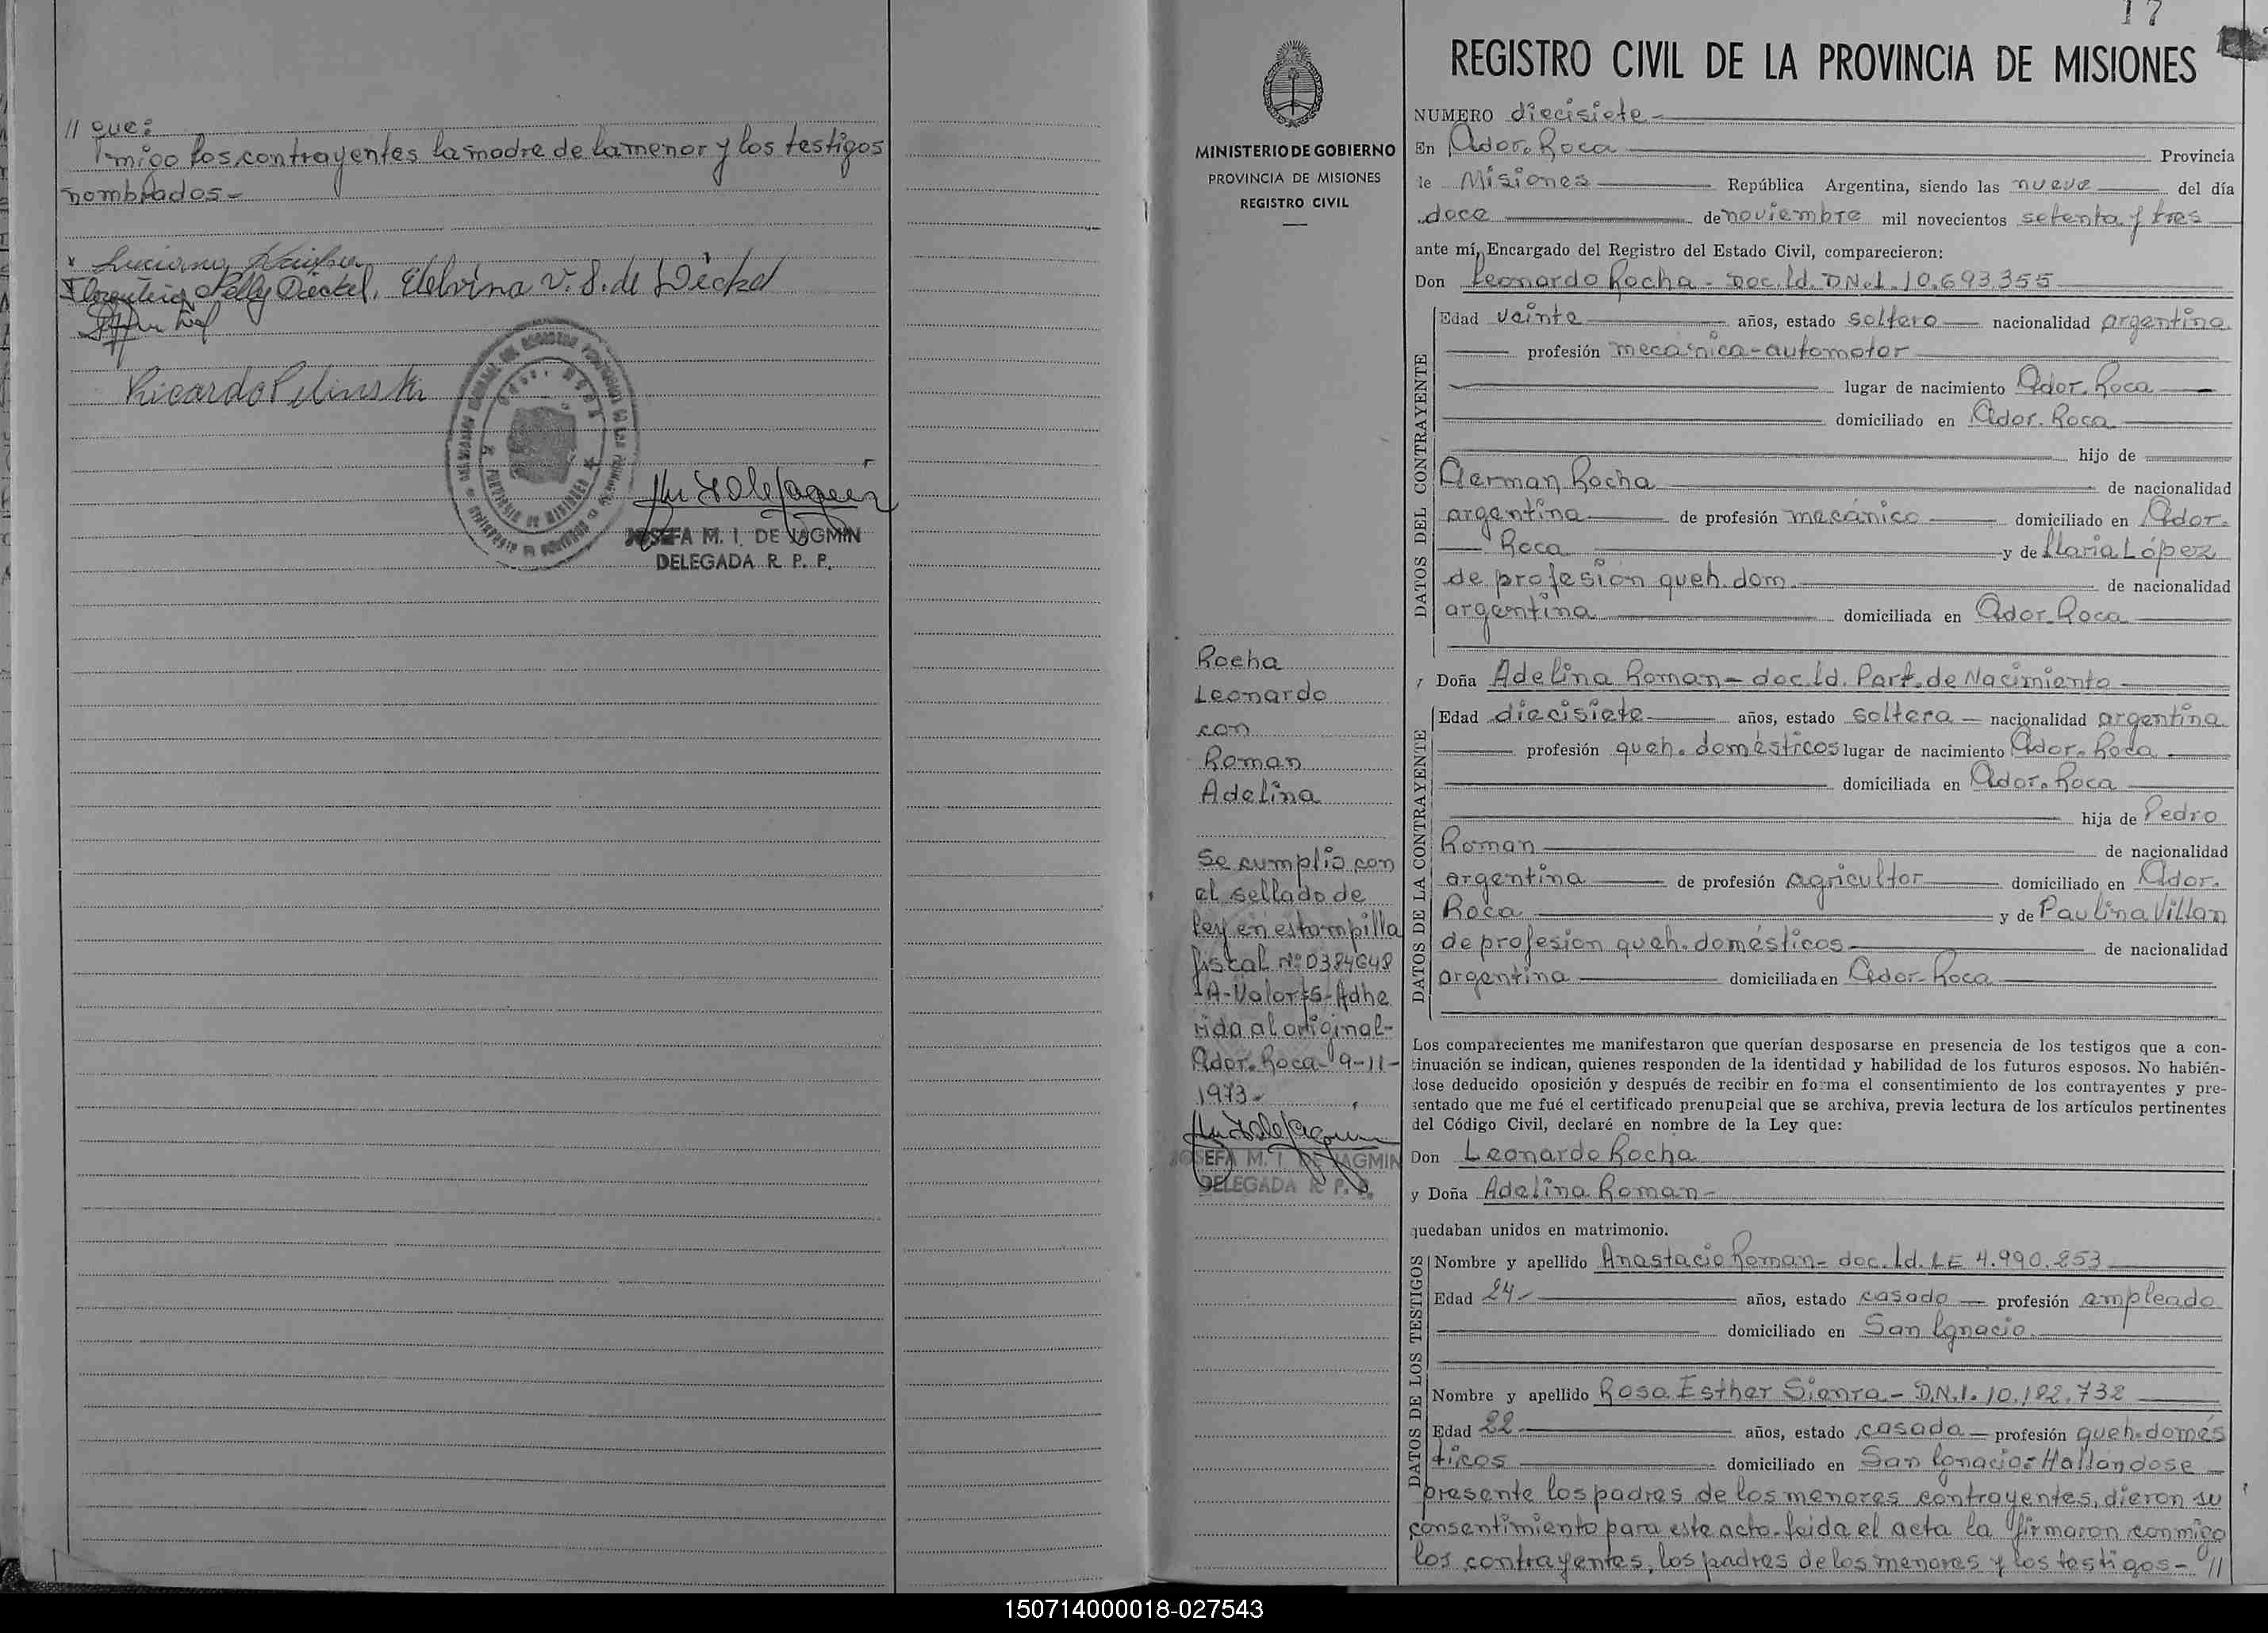 // que:
migo los contrayentes la madre de la menor y los testigos
nombrados-
Florentina Nelly Dickel, Etelvina V. S. de Dickel
Ricardo Pelinski
JOSEFA M. I. DE JAGMIN
DELEGADA R. P. P.
17
MINISTERIO DE GOBIERNO
PROVINCIA DE MISIONES
REGISTRO CIVIL
Rocha
Leonardo
con
Roman
Adelina
Se cumplio con
el sellado de
ley en estampilla
fiscal Nº 0384648
-A-Valor $5-Adhe
rida al original-
Ador. Roca- 9-11-
1973-
JOSEFA M. I. DE JAGMIN
DELEGADA R. P. P.
REGISTRO CIVIL DE LA PROVINCIA DE MISIONES
NUMERO diecisiete-
En Ador. Roca Provincia
de Misiones República Argentina, siendo las nueve del día
doce de noviembre mil novecientos setenta y tres
ante mí, Encargado del Registro del Estado Civil, comparecieron:
Don Leonardo Rocha - Doc. Id. D.N.I. 10.693.355
DATOS DEL CONTRAYENTE
Edad veinte años, estado soltero nacionalidad argentina
profesión mecánica-automotor
lugar de nacimiento Ador. Roca
domiciliado en Ador. Roca
hijo de
German Rocha de nacionalidad
argentina de profesión mecánico domiciliado en Ador.
Roca y de Ilaria López
de profesion queh. dom. de nacionalidad
argentina domiciliada en Ador. Roca
y Doña Adelina Roman- doc. Id. Part. de Nacimiento
DATOS DE LA CONTRAYENTE
Edad diecisiete años, estado soltera nacionalidad argentina
profesión queh. domésticos lugar de nacimiento Ador. Roca
domiciliada en Ador. Roca
hija de Pedro
Roman de nacionalidad
argentina de profesión agricultor domiciliado en Ador.
Roca y de Paulina Villan
de profesion queh. domésticos de nacionalidad
argentina domiciliada en Ador-Roca
Los comparecientes me manifestaron que querían desposarse en presencia de los testigos que a con-
tinuación se indican, quienes responden de la identidad y habilidad de los futuros esposos. No habién-
dose deducido oposición y después de recibir en forma el consentimiento de los contrayentes y pre-
sentado que me fué el certificado prenupcial que se archiva, previa lectura de los artículos pertinentes
del Código Civil, declaré en nombre de la Ley que:
Don Leonardo Rocha
y Doña Adelina Roman-
quedaban unidos en matrimonio.
DATOS DE LOS TESTIGOS
Nombre y apellido Anastacio Roman- doc. Id. LE 4.990.253
Edad 24- años, estado casado profesión empleado
domiciliado en San Ignacio.
Nombre y apellido Rosa Esther Sienra - D.N.I. 10.182.732
Edad 22- años, estado casada profesión queh. domés
ticos domiciliado en San Ignacio- Hallandose
presente los padres de los menores contrayentes, dieron su
consentimiento para este acto- leida el acta la firmaron conmigo
los contrayentes, los padres de los menores y los testigos- //
150714000018-027543